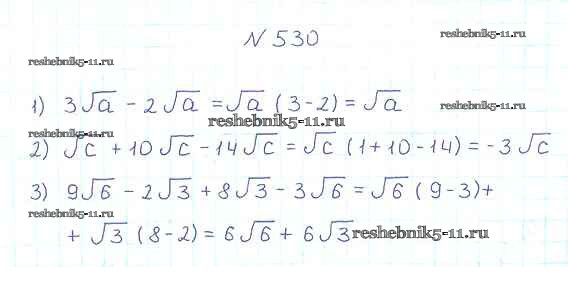 № 530
reshebnik5-11.ru
reshebnik5-11.ru
1) 3√a - 2√a = √a (3-2) = √a
reshebnik5-11.ru
reshebnik5-11.ru
reshebnik5-11.ru
2) √c + 10√c - 14√c = √c (1+10-14) = -3√c
3) 9√6 - 2√3 + 8√3 - 3√6 = √6 (9-3)+
reshebnik5-11.ru
+ √3 (8-2) = 6√6 + 6√3
reshebnik5-11.ru